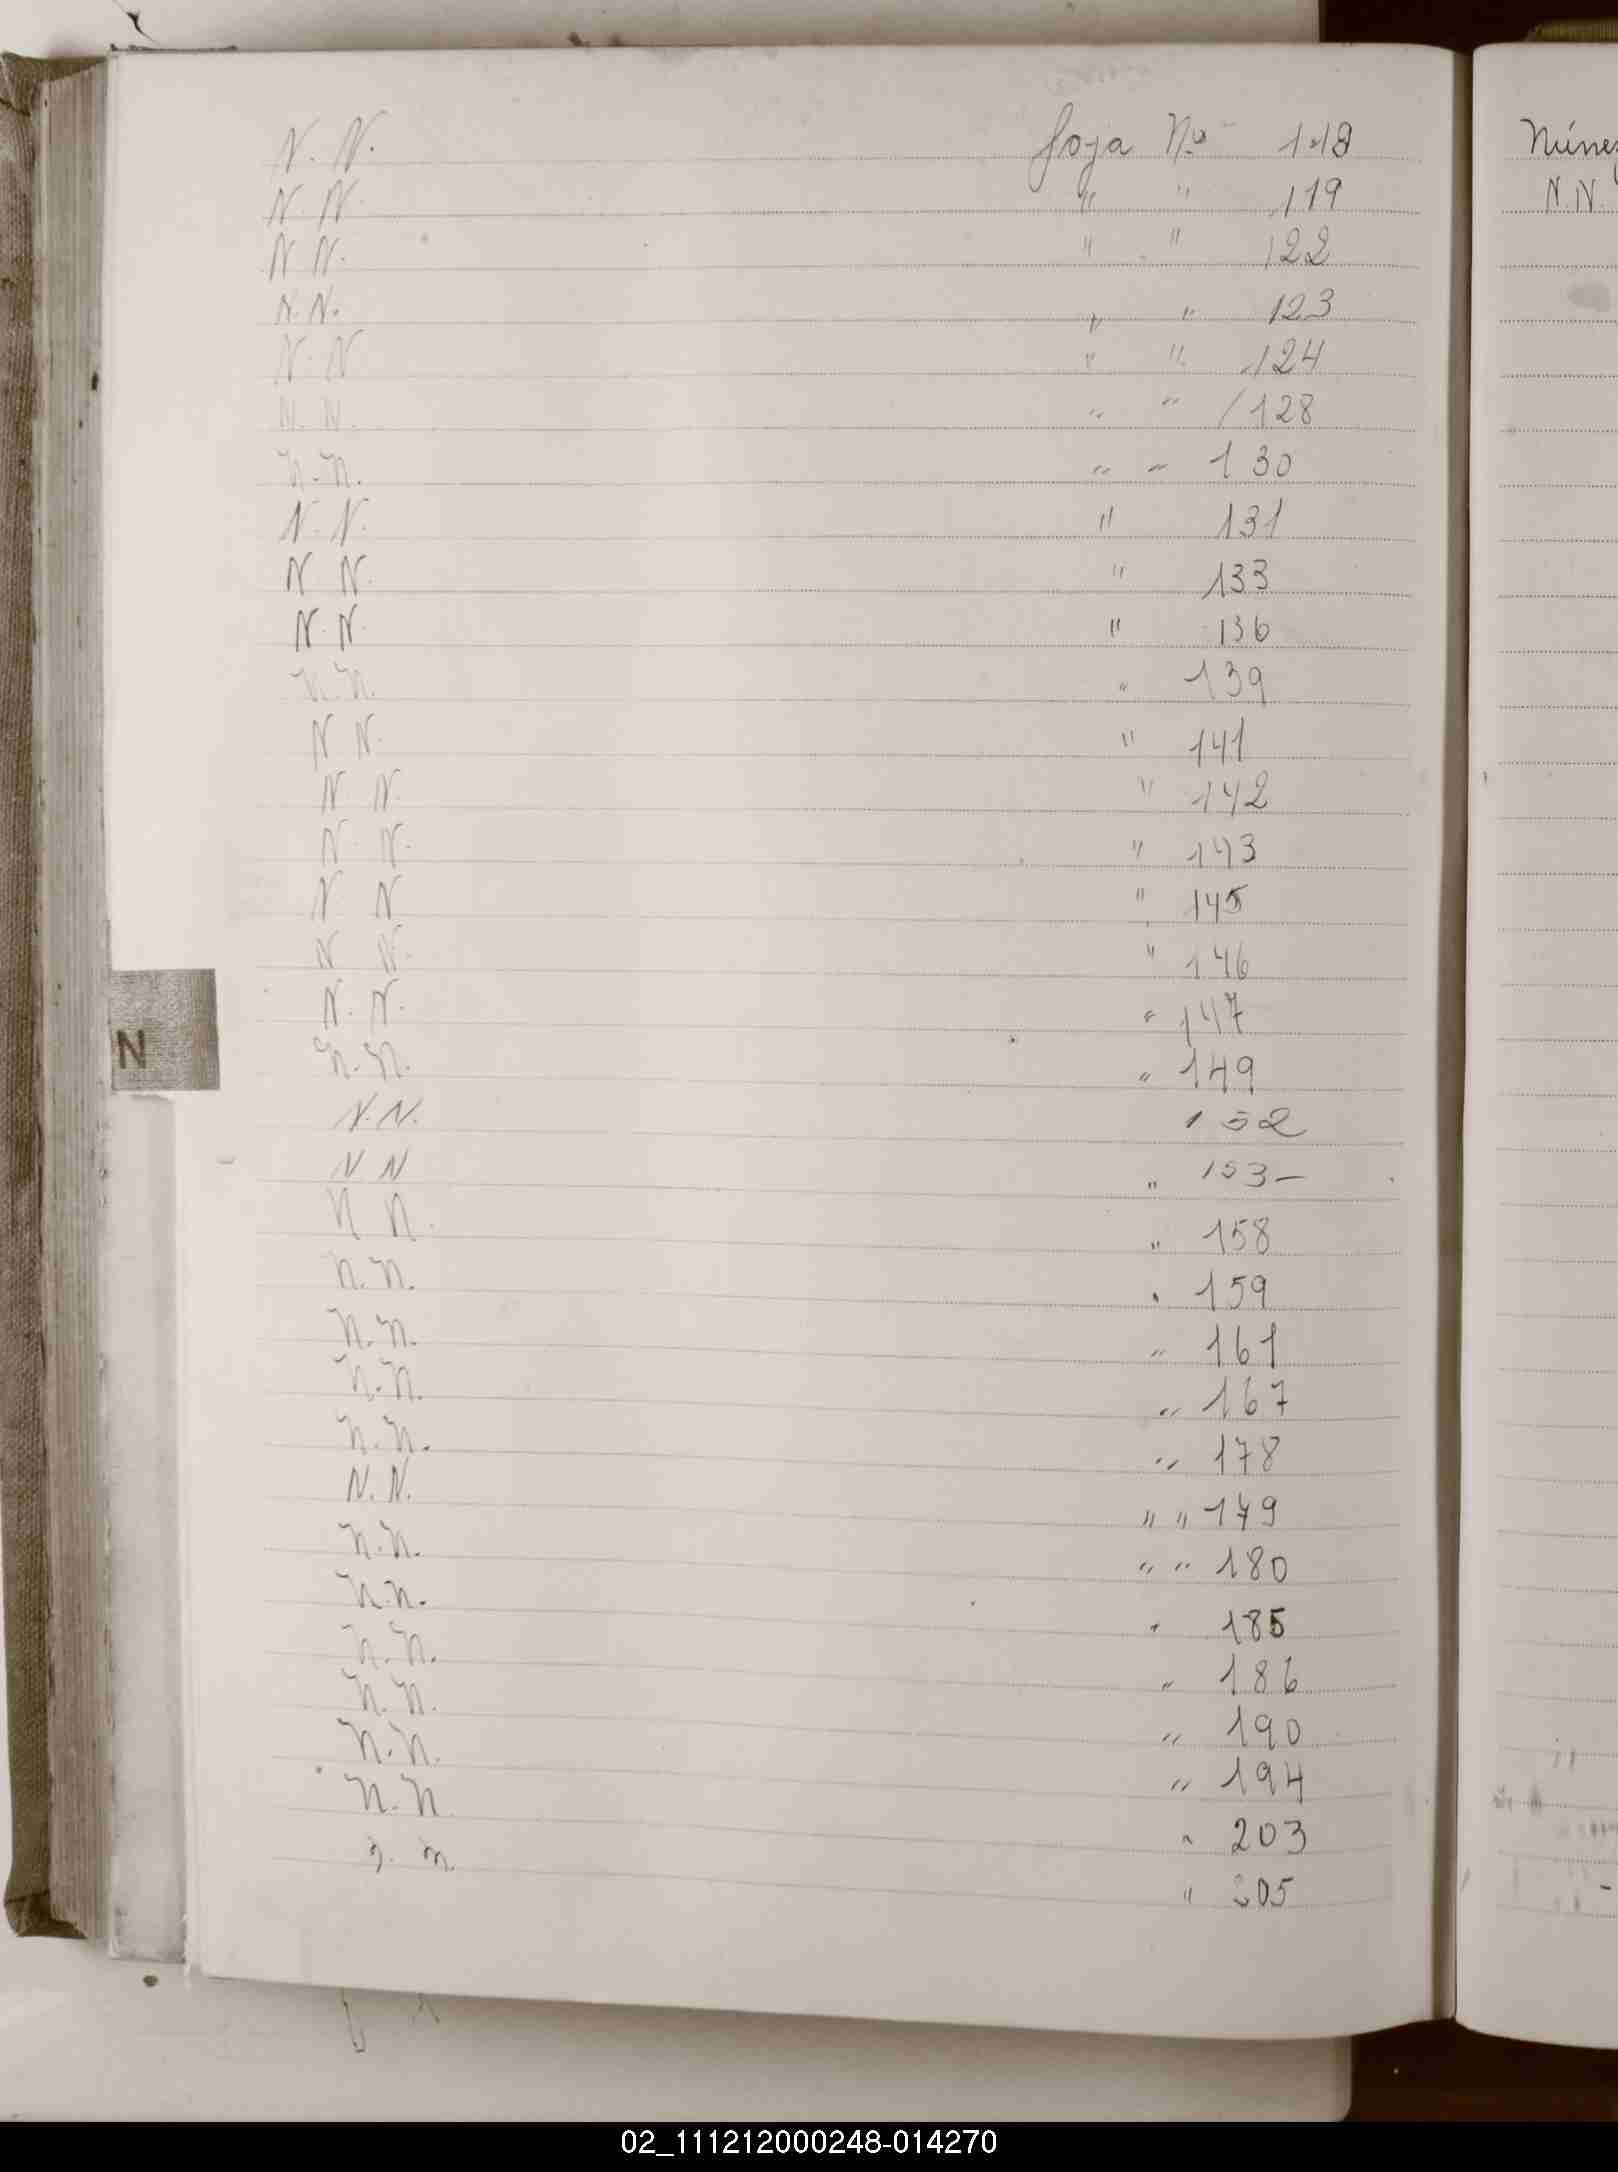 N. N. foja Nº 118
N. N. " " 119
N N. " " 122
N. N. " " 123
N. N " " 124
N. N. " " 128
N. N. " " 130
N. N. " 131
N N. " 133
N. N. " 136
N. N. " 139
N N. " 141
N N. " 142
N. N. " 143
N N " 145
N N. " 146
N. N. " 147
N. N. " 149
N. N. 152
N N " 153-
N N. " 158
N. N. " 159
N. N. " 161
N. N. " 167
N. N. " 178
N. N. " " 179
N. N. " " 180
N. N. " 185
N. N. " 186
N. N. " 190
N. N. " 194
N. N " 203
n. n. " 205
N
N. N.
02_111212000248-014270